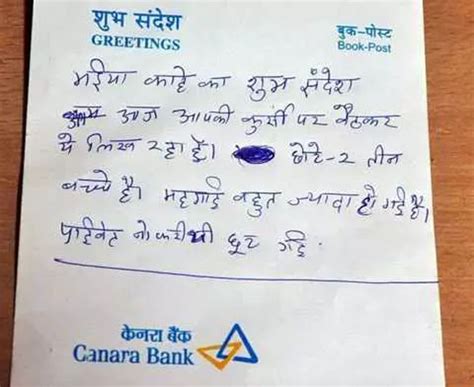 शुभ संदेश
GREETINGS
बुक-पोस्ट
Book-Post
भईया काहे का शुभ संदेश
आज आपकी कुर्सी पर बैठकर
ये लिख रहा हूँ। छोटे-२ तीन
बच्चे है। महगाई बहुत ज्यादा हो गई है।
प्राईवेट नौकरी थी छूट गई
केनरा बैंक
Canara Bank